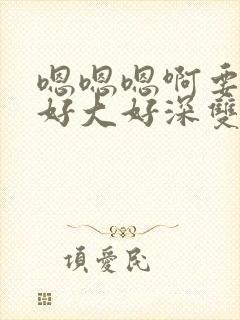 嗯嗯嗯啊要
好大好深雙
項愛民